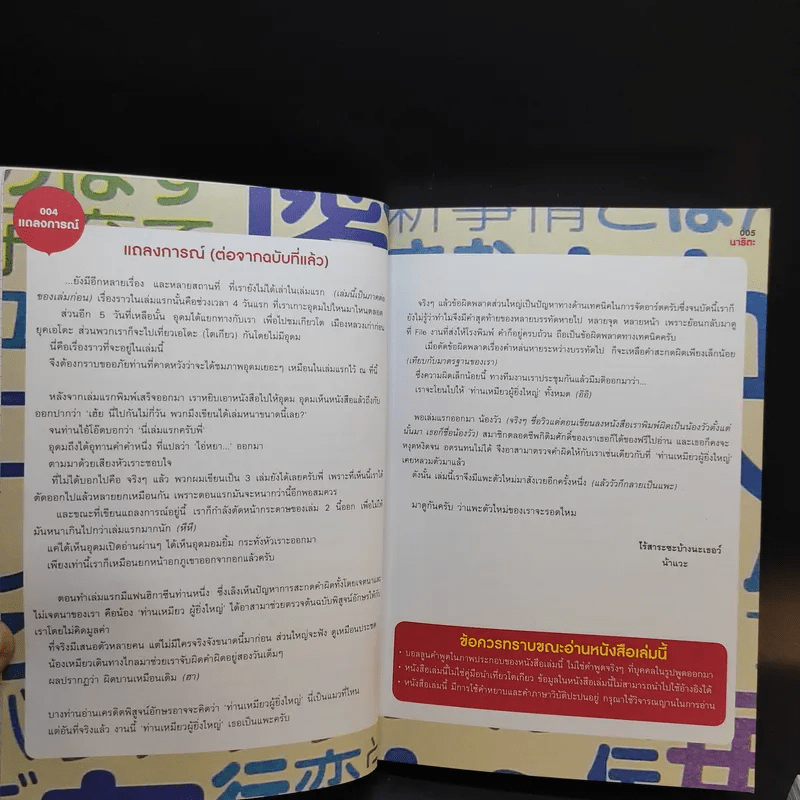 004
แถลงการณ์
แถลงการณ์ (ต่อจากฉบับที่แล้ว)
...ยังมีอีกหลายเรื่อง และหลายสถานที่ ที่เรายังไม่ได้เล่าในเล่มแรก (เล่มนี้เป็นภาคต่อ
ของเล่มก่อน) เรื่องราวในเล่มแรกนั้นคือช่วงเวลา 4 วันแรก ที่เราเกาะอุดมไปไหนมาไหนตลอด
ส่วนอีก 5 วันที่เหลือนั้น อุดมได้แยกทางกับเรา เพื่อไปชมเกียวโต เมืองหลวงเก่าก่อน
ยุคเอโดะ ส่วนพวกเราก็จะไปเที่ยวเอโดะ (โตเกียว) กันโดยไม่มีอุดม
นี่คือเรื่องราวที่จะอยู่ในเล่มนี้
จึงต้องกราบขออภัยท่านที่คาดหวังว่าจะได้ชมภาพอุดมเยอะๆ เหมือนในเล่มแรกไว้ ณ ที่นี้
หลังจากเล่มแรกพิมพ์เสร็จออกมา เราหยิบเอาหนังสือไปให้อุดม อุดมเห็นหนังสือแล้วถึงกับ
ออกปากว่า "เฮ้ย นี่ไปกันไม่กี่วัน พวกมึงเขียนได้เล่มหนาขนาดนี้เลย?"
จนท่านไอ้โอ๊ตบอกว่า 'นี่เล่มแรกครับพี่'
อุดมถึงได้อุทานคำคำหนึ่ง ที่แปลว่า 'ไอ่หยา...' ออกมา
ตามมาด้วยเสียงหัวเราะชอบใจ
ที่ไม่ได้บอกไปคือ จริงๆ แล้ว พวกผมเขียนเป็น 3 เล่มยังได้เลยครับพี่ เพราะที่เห็นนี้เราได้
ตัดออกไปแล้วหลายยกเหมือนกัน เพราะตอนแรกมันจะหนากว่านี้อีกพอสมควร
และขณะที่เขียนแถลงการณ์อยู่นี้ เราก็กำลังตัดหน้ากระดาษของเล่ม 2 นี้ออก เพื่อไม่ให้
มันหนาเกินไปกว่าเล่มแรกมากนัก (หึหึ)
แค่ได้เห็นอุดมเปิดอ่านผ่านๆ ได้เห็นอุดมอมยิ้ม กระทั่งหัวเราะออกมา
เพียงเท่านี้เราก็เหมือนยกหน้าอกภูเขาออกจากอกแล้วครับ
ตอนทำเล่มแรกมีแฟนฮิกาซีนท่านหนึ่ง ซึ่งเล็งเห็นปัญหาการสะกดคำผิดทั้งโดยเจตนาและ
ไม่เจตนาของเรา คือน้อง 'ท่านเหมียว ผู้ยิ่งใหญ่' ได้อาสามาช่วยตรวจต้นฉบับพิสูจน์อักษรให้กับ
เราโดยไม่คิดมูลค่า
ที่จริงมีเสนอตัวหลายคน แต่ไม่มีใครจริงจังขนาดนี้มาก่อน ส่วนใหญ่จะฟัง ดูเหมือนประชด
น้องเหมียวเดินทางไกลมาช่วยเราจับผิดคำผิดอยู่สองวันเต็มๆ
ผลปรากฏว่า ผิดบานเหมือนเดิม (ฮา)
บางท่านอ่านเครดิตพิสูจน์อักษรอาจจะคิดว่า 'ท่านเหมียวผู้ยิ่งใหญ่' นี่เป็นแมวที่ไหน
แต่อันที่จริงแล้ว งานนี้ 'ท่านเหมียวผู้ยิ่งใหญ่' เธอเป็นแพะครับ
005
นาริตะ
จริงๆ แล้วข้อผิดพลาดส่วนใหญ่เป็นปัญหาทางด้านเทคนิคในการจัดอาร์ตครับซึ่งจนบัดนี้เราก็
ยังไม่รู้ว่าทำไมจึงมีคำสุดท้ายของหลายบรรทัดหายไป หลายจุด หลายหน้า เพราะย้อนกลับมาดู
ที่ File งานที่ส่งให้โรงพิมพ์ คำก็อยู่ครบถ้วน ถือเป็นข้อผิดพลาดทางเทคนิคครับ
เมื่อตัดข้อผิดพลาดเรื่องคำหล่นหายระหว่างบรรทัดไป ก็จะเหลือคำสะกดผิดเพียงเล็กน้อย
(เทียบกับมาตรฐานของเรา)
ซึ่งความผิดเล็กน้อยนี้ ทางทีมงานเราประชุมกันแล้วมีมติออกมาว่า...
เราจะโยนไปให้ 'ท่านเหมียวผู้ยิ่งใหญ่' ทั้งหมด (อิอิ)
พอเล่มแรกออกมา น้องวัว (จริงๆ ชื่อวิวแต่ตอนเขียนลงหนังสือเราพิมพ์ผิดเป็นน้องวัวตั้งแต่
นั้นมา เธอก็ชื่อน้องวัว) สมาชิกตลอดชีพกิติมศักดิ์ของเราเธอก็ได้ของฟรีไปอ่าน และเธอก็คงจะ
หงุดหงิดจน อดรนทนไม่ได้ จึงอาสามาตรวจคำผิดให้กับเราเช่นเดียวกับที่ 'ท่านเหมียวผู้ยิ่งใหญ่'
เคยหลวมตัวมาแล้ว
ดังนั้น เล่มนี้เราจึงมีแพะตัวใหม่มาสังเวยอีกครั้งหนึ่ง (แล้ววัวก็กลายเป็นแพะ)
มาดูกันครับ ว่าแพะตัวใหม่ของเราจะรอดไหม
ไร้สาระซะบ้างนะเธอว์
น้าแวะ
ข้อควรทราบขณะอ่านหนังสือเล่มนี้
• บอลลูนคำพูดในภาพประกอบของหนังสือเล่มนี้ ไม่ใช่คำพูดจริงๆ ที่บุคคลในรูปพูดออกมา
• หนังสือเล่มนี้ไม่ใช่คู่มือนำเที่ยวโตเกียว ข้อมูลในหนังสือเล่มนี้ไม่สามารถนำไปใช้อ้างอิงได้
• หนังสือเล่มนี้ มีการใช้คำหยาบและคำภาษาวิบัติปะปนอยู่ กรุณาใช้วิจารณญาณในการอ่าน